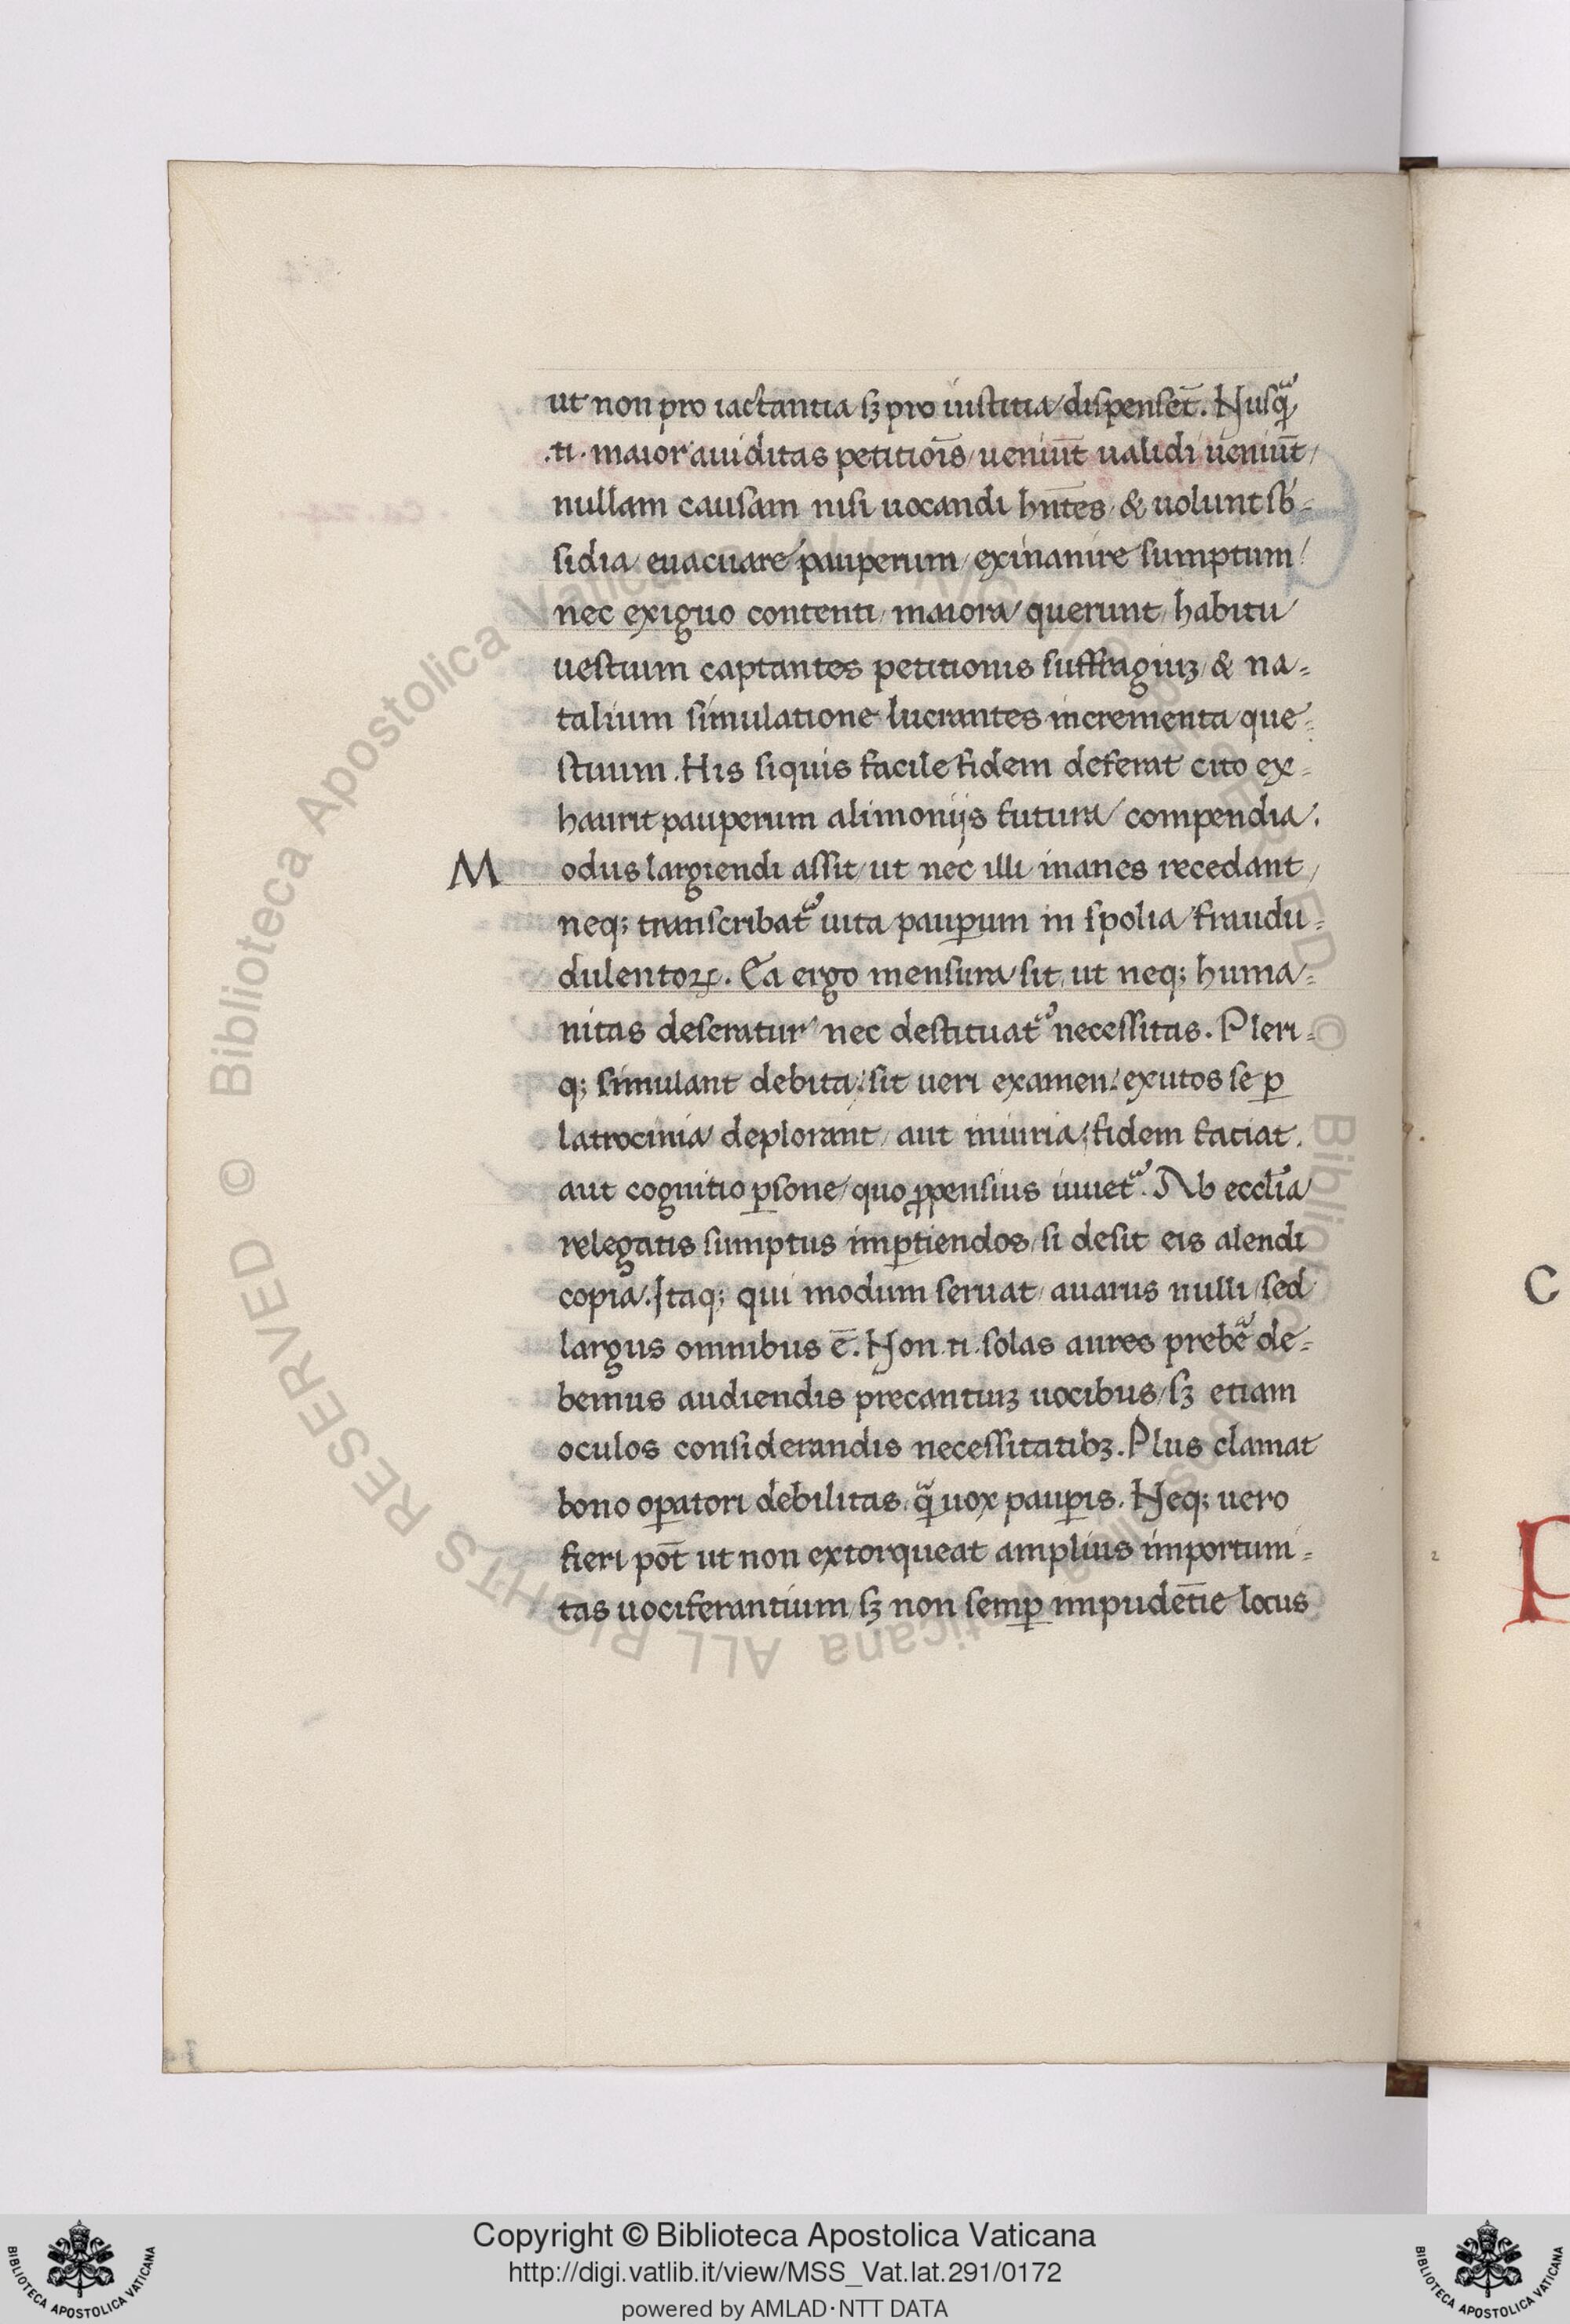 ut non pro iactantia sꝫ pro iustitia dispenset̄. Nusqᷓ
.n. maior auiditas petitiōīs ueniūt ualidi ueniūt
nullam causam nisi uocandi hn̄tes & uolunt sb-
sidia euacuare pauperum exinanire sumptum
nec exiguo contenti maiora querunt habitu
uestium captantes petitionis suffragiuꝫ & na-
talium simulatione lucrantes incrementa que-
stuum. His siquis facile fidem deferat cito ex-
haurit pauperum alimonijs futura compendia.
Modus largiendi assit ut nec illi inanes recedant
neq; transcribat᷑ uita paupꝑum in spolia fraudu-
dulentoꝝ. Ea ergo mensura sit ut neq; huma-
nitas deseratur nec destituat᷑ necessitas. Pleri-
q; simulant debita: sit ueri examen: exutos se ꝑ
latrocinia deplorant aut iniuria: fidem faciat.
aut cognitio ꝑsone quo ꝓpensius iuuet᷑. Ab eccl̄ia
relegatis sumptus imꝑtiendos si desit eis alendi
copia. Itaq; qui modum seruat auarus nulli sed
largus omnibus ē. Non .n. solas aures prebē de-
bemus audiendis precantiuꝫ uocibus sꝫ etiam
oculos considerandis necessitatibꝫ. Plus clamat
bono oꝑatori debilitas qᷓ uox pauꝑis. Neq; uero
fieri pōt ut non extorqueat amplius importuni-
tas uociferantium sꝫ non semꝑ impudētie locus
C
P
Copyright © Biblioteca Apostolica Vaticana
http://digi.vatlib.it/view/MSS_Vat.lat.291/0172
powered by AMLAD·NTT DATA
BIBLIOTECA APOSTOLICA VATICANA
BIBLIOTECA APOSTOLICA VATICANA
© Biblioteca Apostolica Vaticana ALL RIGHTS RESERVED